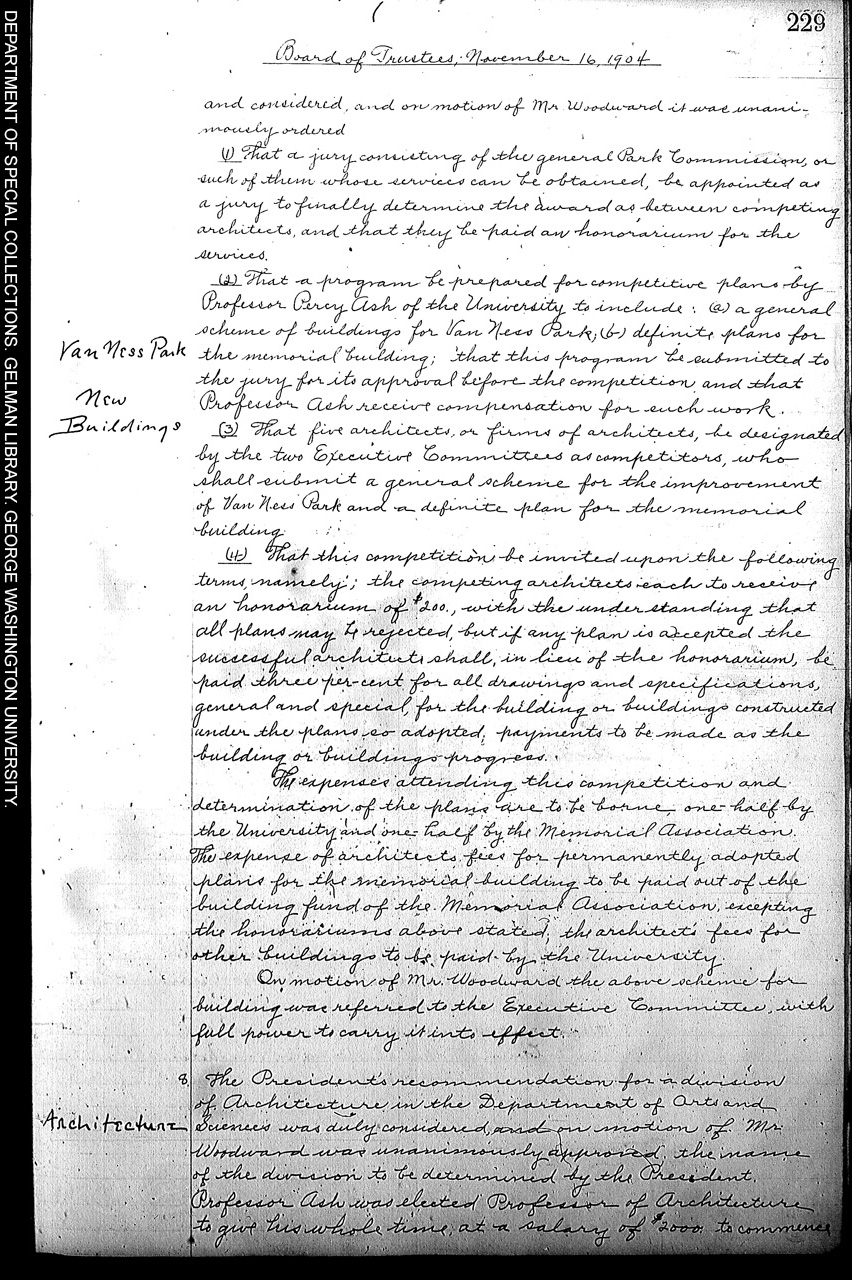 229
Board of Trustees, November 16, 1904
and considered, and on motion of Mr. Woodward it was unani-
mously ordered
(1) That a jury consisting of the general Park Commission, or
such of them whose services can be obtained, be appointed as
a jury to finally determine the award as between competing
architects, and that they be paid an honorarium for the
services.
(2) That a program be prepared for competitive plans by
Professor Percy Ash of the University to include: (a) a general
scheme of buildings for Van Ness Park; (b) definite plans for
the memorial building; that this program be submitted to
the jury for its approval before the competition, and that
Professor Ash receive compensation for such work.
(3) That five architects, or firms of architects, be designated
by the two Executive Committees as competitors, who
shall submit a general scheme for the improvement
of Van Ness Park and a definite plan for the memorial
building.
(4) That this competition be invited upon the following
terms, namely; the competing architects each to receive
an honorarium of $200., with the understanding that
all plans may be rejected, but if any plan is accepted the
successful architects shall, in lieu of the honorarium, be
paid three per-cent for all drawings and specifications,
general and special, for the building or buildings constructed
under the plans so adopted, payments to be made as the
building or buildings progress.
The expenses attending this competition and
determination of the plans are to be borne, one-half by
the University and one-half by the Memorial Association.
The expense of architects fees for permanently adopted
plans for the memorial building to be paid out of the
building fund of the Memorial Association, excepting
the honorariums above stated, the architect's fees for
other buildings to be paid by the University.
On motion of Mr. Woodward the above scheme for
building was referred to the Executive Committee, with
full power to carry it into effect.
8. The President's recommendation for a division
of Architecture in the Department of Arts and
Sciences was duly considered, and on motion of Mr.
Woodward was unanimously approved, the name
of the division to be determined by the President.
Professor Ash was elected Professor of Architecture
to give his whole time, at a salary of $2000. to commence
Van Ness Park
New
Buildings
Architecture
DEPARTMENT OF SPECIAL COLLECTIONS, GELMAN LIBRARY, GEORGE WASHINGTON UNIVERSITY.